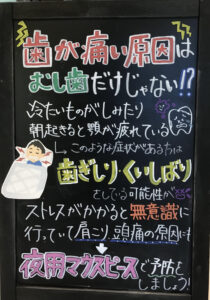 歯が痛い原因は
むし歯だけじゃない!?
冷たいものがしみたり
朝起きると顎が疲れている
このような症状がある方は
歯ぎしりくいしばり
をしている可能性が
ストレスがかかると無意識に
行っていて肩こり、頭痛の原因にも
夜用マウスピースで予防を
しましょう!